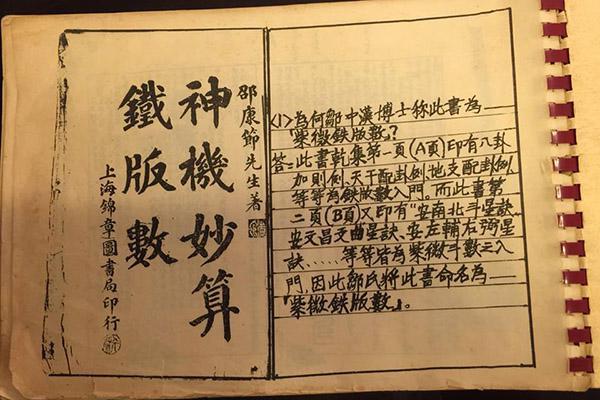 邵康節先生著
神機妙算
鐵版數
上海錦章圖書局印行
〈1〉為何鄒中漢博士称此書為——
「紫微鉄版數?
答:此書乾集第一頁(A頁)印有八卦
加則例,天干配卦例,地支配卦例,
等等為鉄版數入門。而此書第
二頁(B頁)又印有"安南北斗星訣、
安文昌文曲星訣、安左輔右弼星
訣......等等皆為紫微斗數之入
門,因此鄒氏將此書命名為——
「紫微鉄版數」。